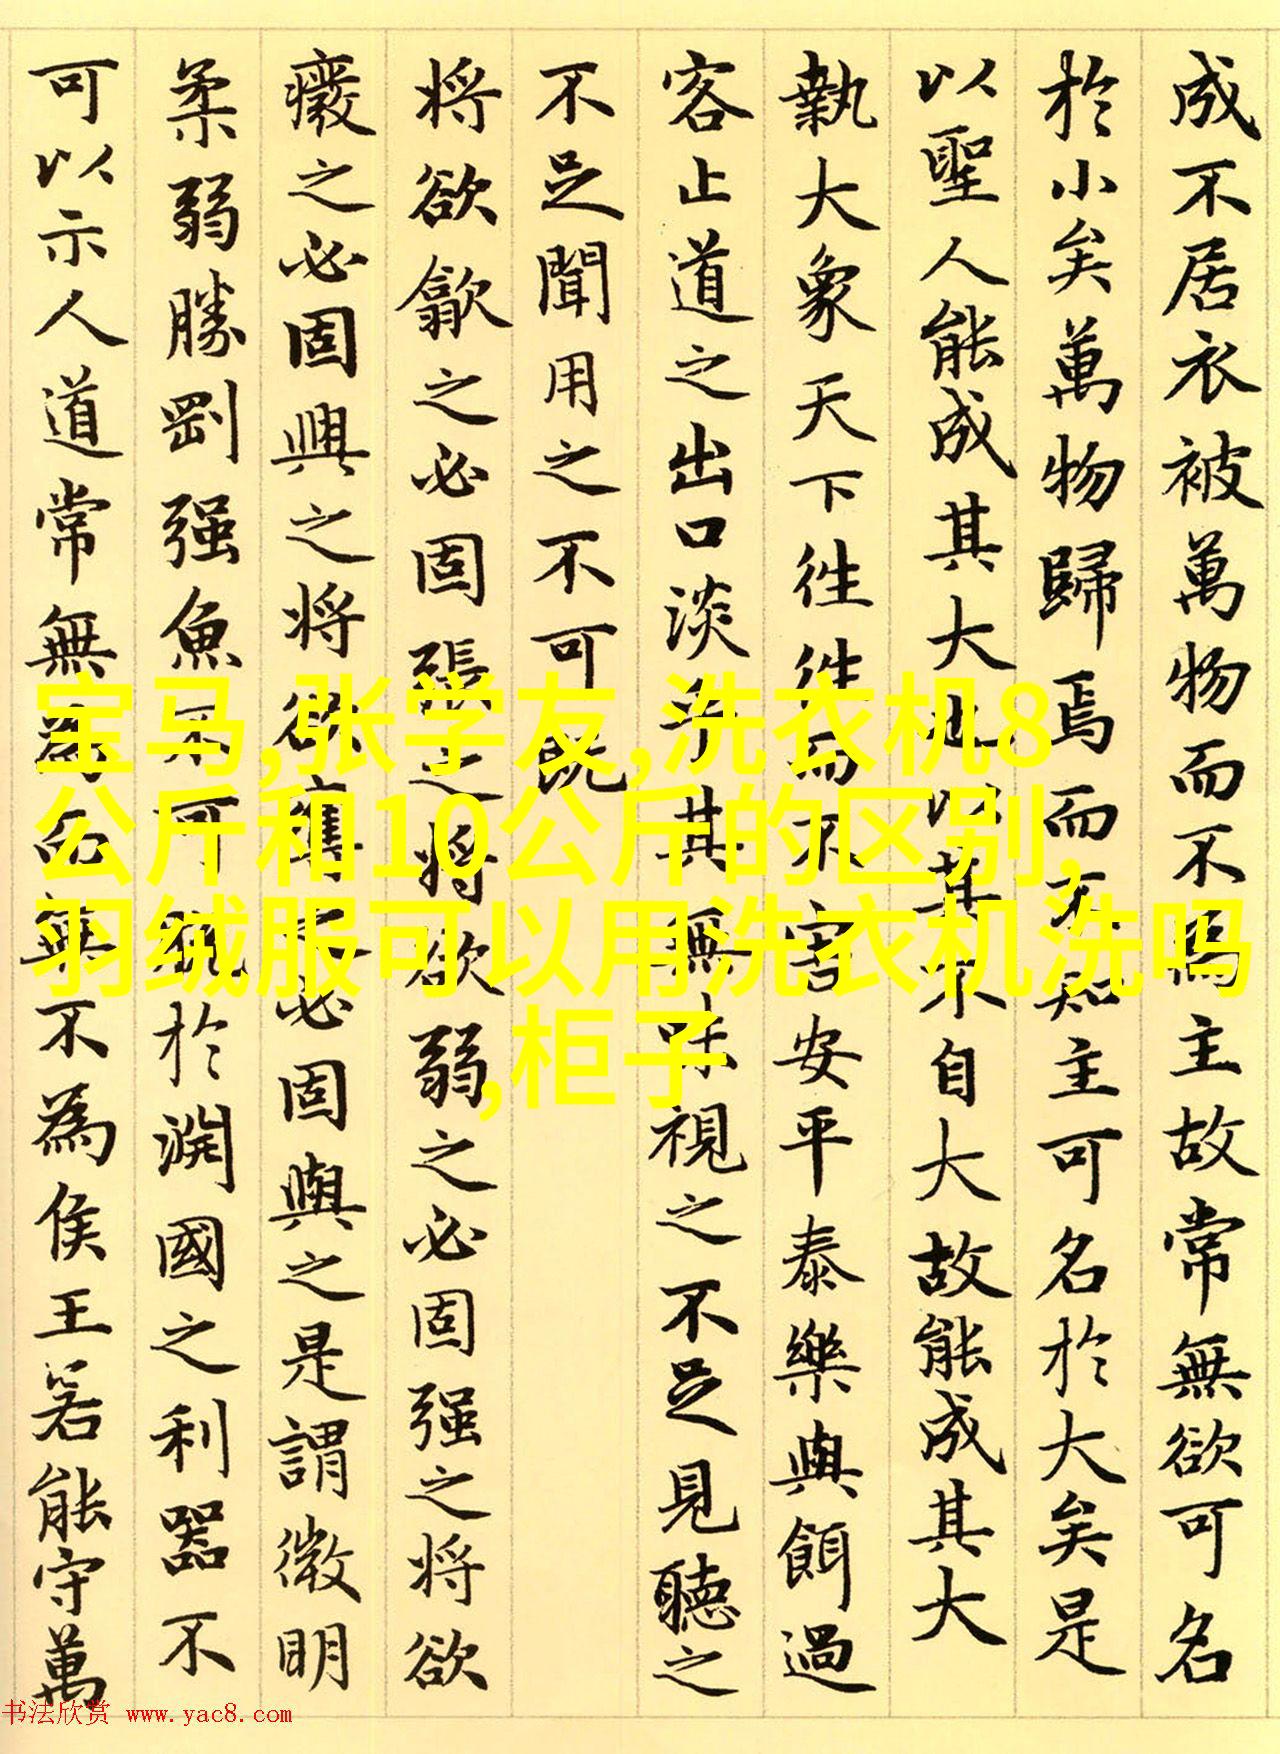 成不居衣被萬物而不為主故常無欲可名
於小矣萬物歸焉而不知主可名於大矣是
以聖人能成其大也以其不自大故能成其大
執大象天下往往而不害安平泰樂與餌過
客止道之出口淡乎其無味視之不足見聽之
不足聞用之不可既
将欲歙之必固張之将欲弱之必固强之将欲
癈之必固興之将欲奪之必固與之是謂微明
柔弱勝剛强魚不可脱於淵國之利器不
可以示人道常無為而無不為侯王若能守萬
宝马,张学友,洗衣机8
公斤和10公斤的区别,
羽绒服可以用洗衣机洗吗
,柜子
书法欣赏 www.yac8.com